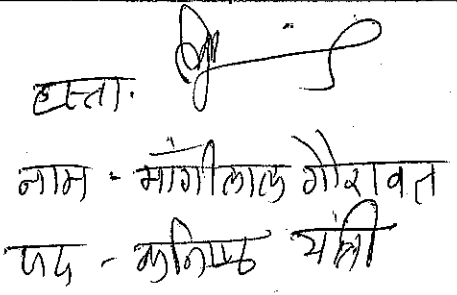 हस्ता.
नाम - मांगीलाल गौरावत
पद - कनिष्ठ यंत्री